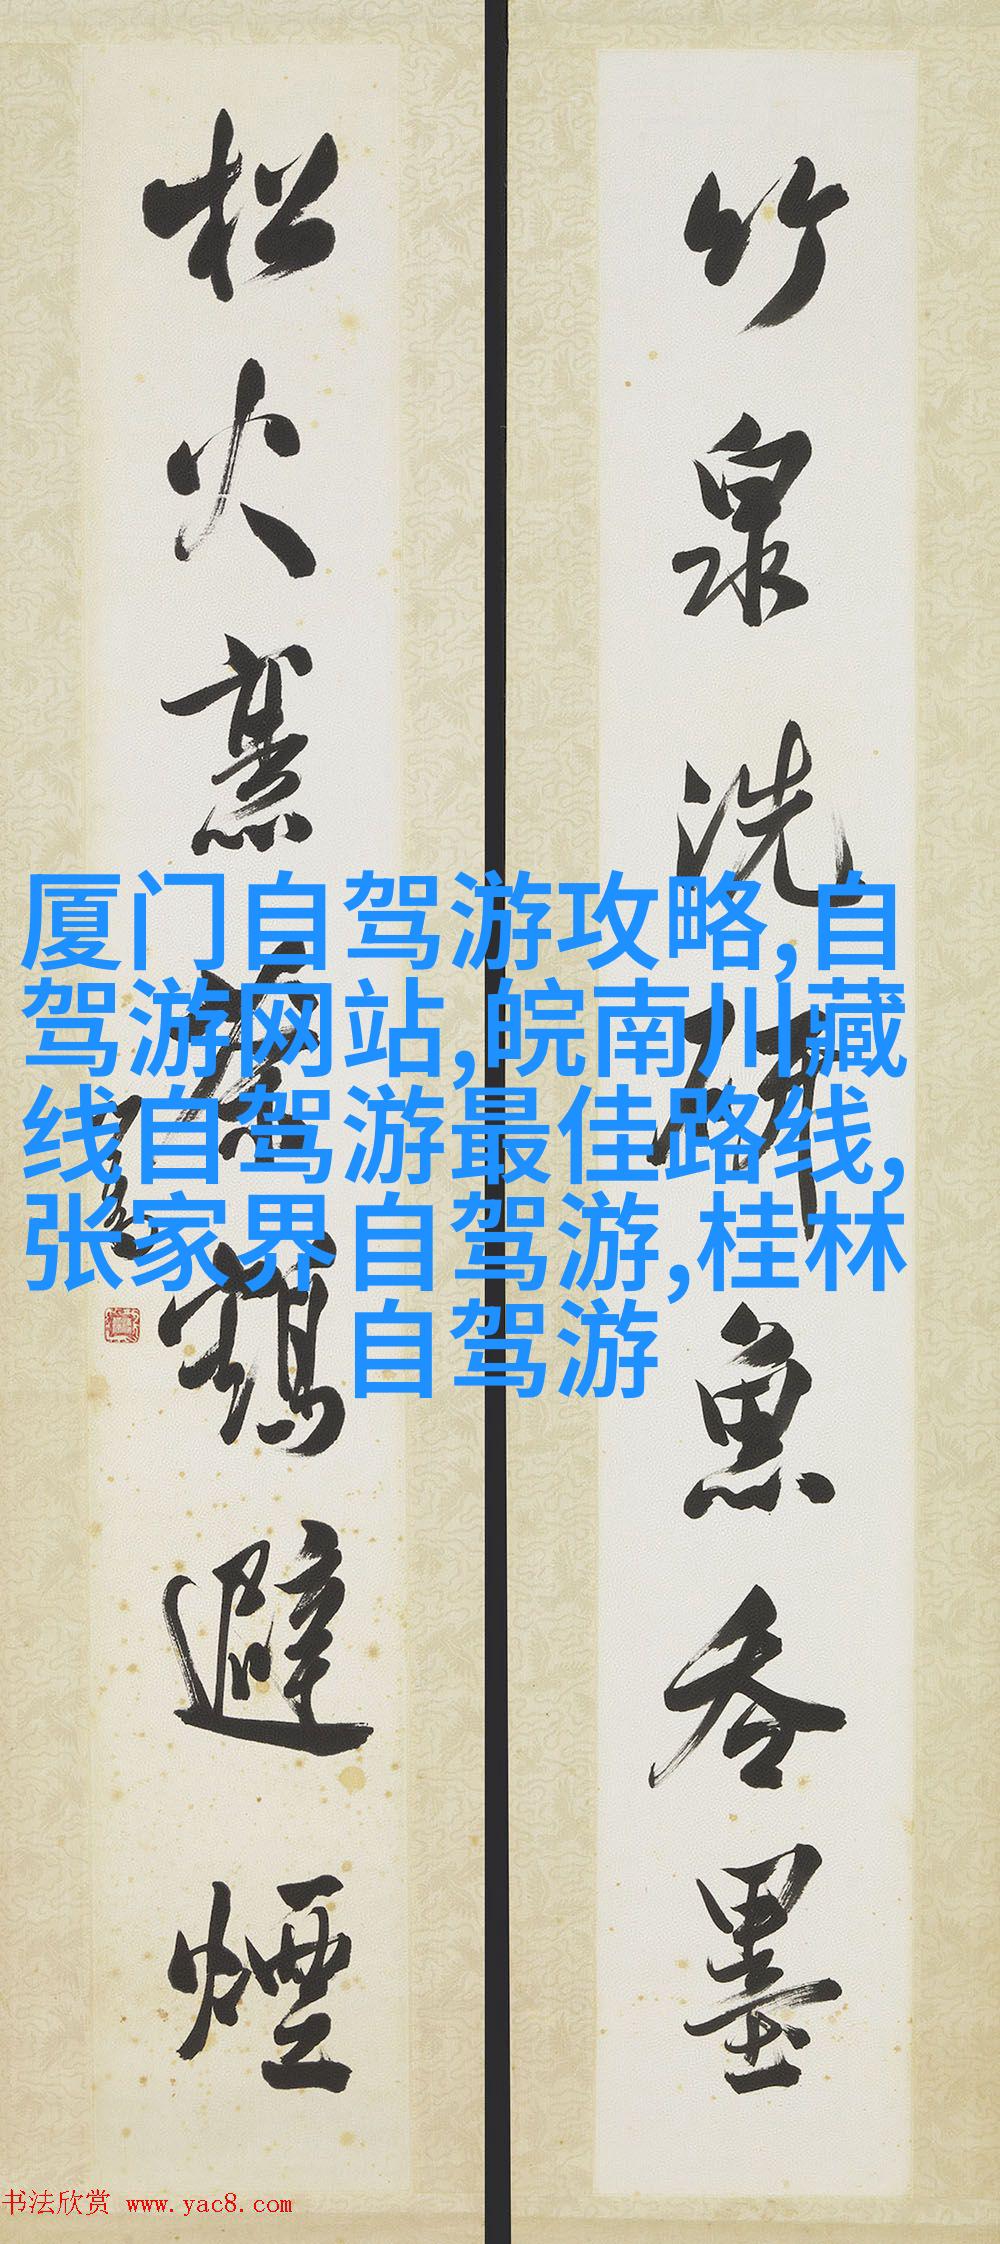 竹泉洗研魚吞墨
松火烹茶鶴避煙
厦门自驾游攻略,自
驾游网站,皖南川藏
线自驾游最佳路线,
张家界自驾游,桂林
自驾游
书法欣赏 www.yac8.com